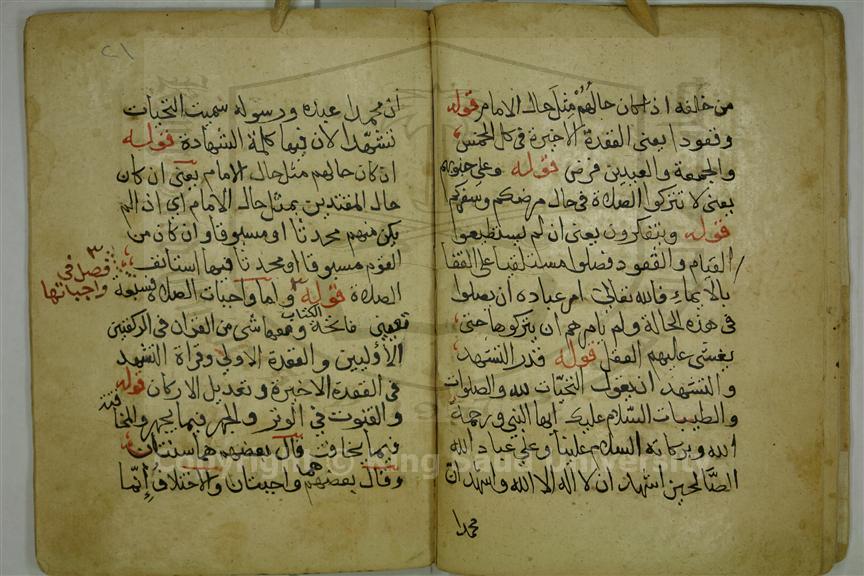 من خلفه اذا كان حالهم مثل حال الامام قوله
وقعودا يعني القعدة الاخيرة في كل الخمس
والجمعة والعيدين فرض قوله وعلى جنوبهم
يعني لا تتركوا الصلاة في حال مرضكم وسفركم
قوله ويتفكرون يعني ان لم يستطيعوا
القيام والقعود فصلوا مستلقيا على القفا
بالايماء فالله تعالى امر عباده ان يصلوا
في هذه الحالة ولم نامرهم ان يتركوها حتى
يغشى عليهم العقل قوله قدر التشهد
والتشهد ان يقول التحيات لله والصلوات
والطيبات السلام عليك ايها النبي ورحمة
الله وبركاته السلام علينا وعلى عباد الله
الصالحين اشهد ان لا اله الا الله واشهد ان
محمدا
٢١
ان محمدا عبده ورسوله سميت التحيات
تشهدا لان فيها كلمة الشهادة قوله
ان كان حالهم مثل حال الامام يعني ان كان
حال المقتدين بمثل حال الامام اي اذا لم
يكن منهم محدثا او مسبوقا وان كان من
القوم مسبوقا او محدثا فيها استانف
الصلاة قوله واما واجبات الصلاة فسبعة
فصل في
واجباتها
تعيين فاتحة الكتاب ومعها شي من القران في الركعتين
الأوليين والقعدة الاولى وقراة التشهد
في القعدة الاخيرة وتعديل الاركان قوله
والقنوت في الوتر والجهر فيما يجهر والمخافتة
فيما يخافت قال بعضهم هما سنتان
وقال بعضهم هما واجبتان والاختلاف إنما
Copyright © King Saud University